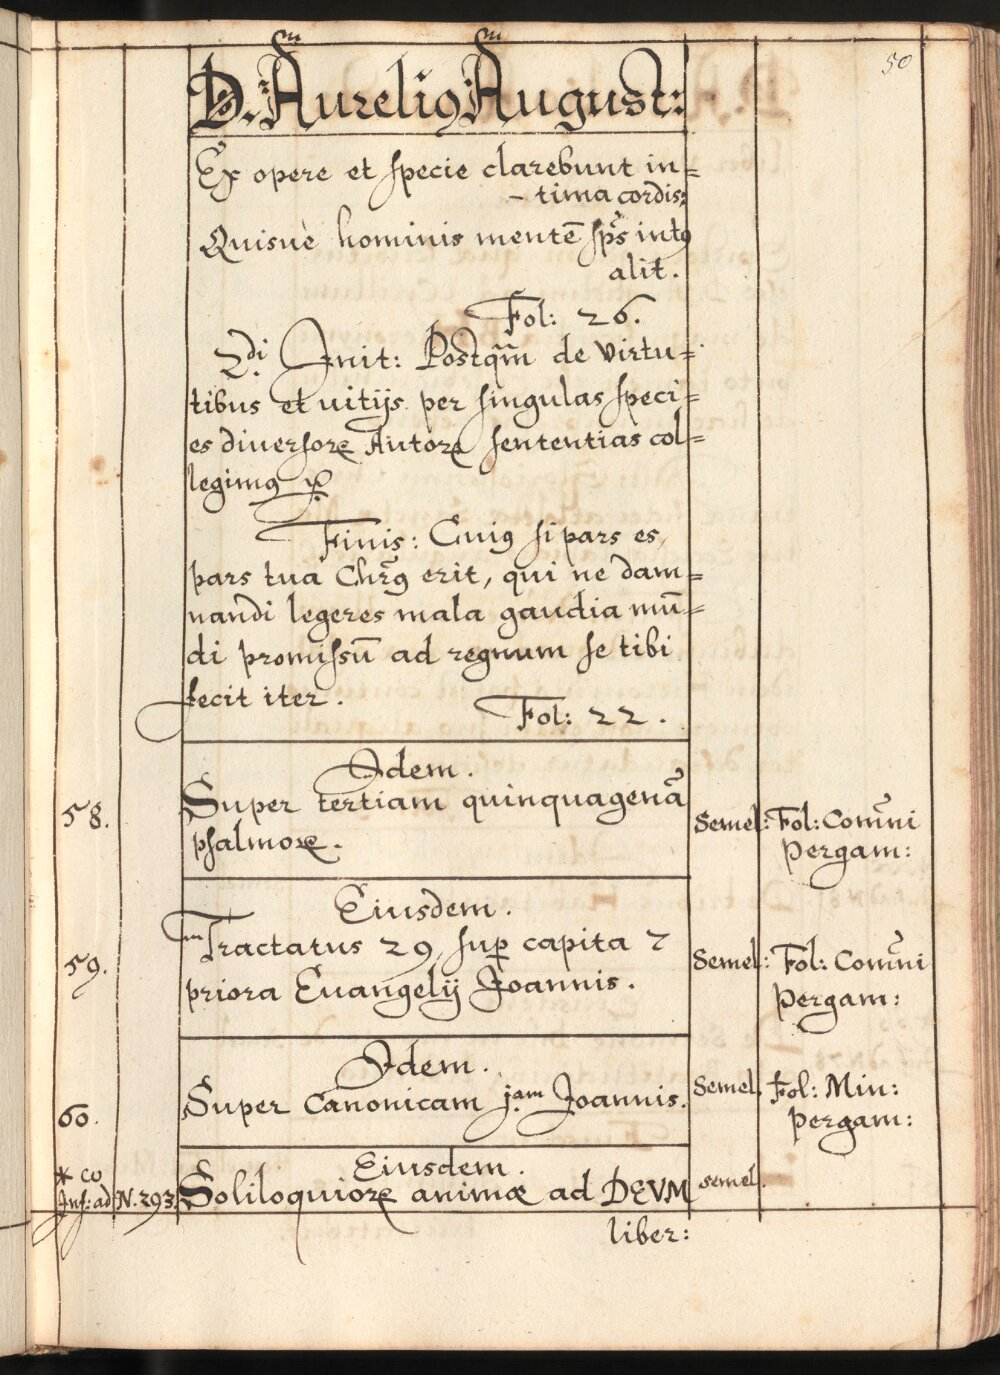 50
D. Aureliꝰ August:
Ex opere et specie clarebunt in=
tima cordis:
Quisuè hominis mentē sp̄s intꝰ
alit.
Fol: 26.
2di Init: Postqm̄ de virtu=
tibus et uitijs per singulas speci=
es diuersorꝝ Autorꝝ sententias col=
legimꝰ
Finis: Cuiꝰ si pars es,
pars tua Chr̄ꝰ erit, qui ne dam=
nandi legeres mala gaudia mū=
di promissū ad regnum se tibi
fecit iter.
Fol: 22.
Idem.
58. Super tertiam quinquagenā Semel: Fol: Com̄uni
psalmorꝝ. Pergam:
Eiusdem.
59. Tractatus 29, suꝑ capita 7 Semel: Fol: Com̄uni
priora Euangelij Joannis. Pergam:
Idem.
60. Super Canonicam jam Joannis. Semel. Fol: Min:
Pergam:
Eiusdem.
* co
Inf: ad N. 293. Soliloquiorꝝ animæ ad DEVM semel.
liber: